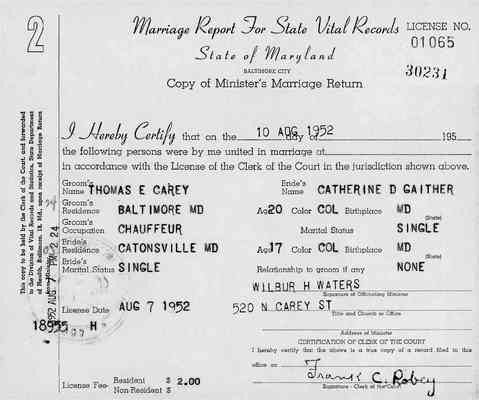 2
Marriage Report For State Vital Records LICENSE NO.
01065
State of Maryland
BALTIMORE CITY
30231
Copy of Minister's Marriage Return
This copy to be held by the Clerk of the Court, and forwarded
to the Division of Vital Records and Statistics, State Department
of Health, Baltimore, 18, Md., upon receipt of Marriage Return
from Minister.
I Hereby Certify that on the 10 AUG 1952 day of 195
the following persons were by me united in marriage at
in accordance with the License of the Clerk of the Court in the jurisdiction shown above.
Groom's Name THOMAS E CAREY Bride's Name CATHERINE D GAITHER
Groom's Residence BALTIMORE MD Age 20 Color COL Birthplace MD
(State)
Groom's Occupation CHAUFFEUR Marital Status SINGLE
Bride's Residence CATONSVILLE MD Age 17 Color COL Birthplace MD
(State)
Bride's Marital Status SINGLE Relationship to groom if any NONE
WILBUR H WATERS
Signature of Officiating Minister
License Date AUG 7 1952 520 N CAREY ST
Title and Church or Office
1952 AUG PM 2 24
18955 H
Address of Minister
CERTIFICATION OF CLERK OF THE COURT
I hereby certify that the above is a true copy of a record filed in this
office on
Frank C. Robey
Signature - Clerk of the Court
License Fee- Resident $ 2.00
Non-Resident $